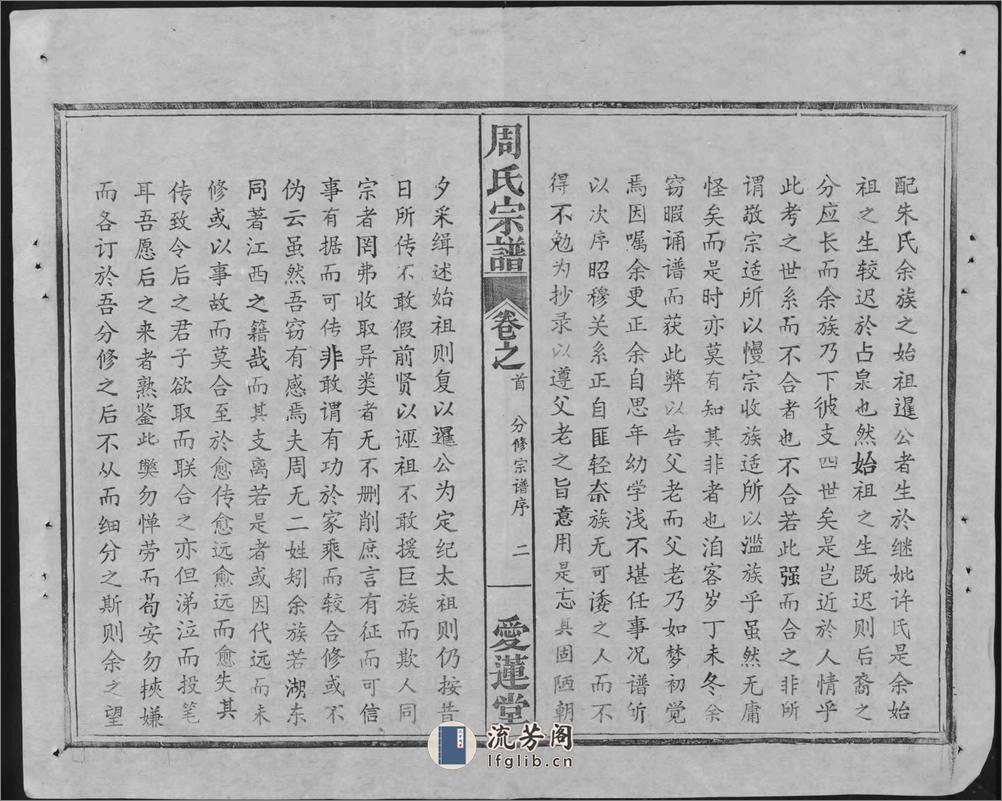 配朱氏余族之始祖暹公者生於继妣许氏是余始
祖之生较迟於占泉也然始祖之生既迟则后裔之
分应长而余族乃下彼支四世矣是岂近於人情乎
此考之世系而不合者也不合若此强而合之非所
谓敬宗适所以慢宗收族适所以滥族乎虽然无庸
怪矣而是时亦莫有知其非者也洎客岁丁未冬余
窃暇诵谱而获此弊以告父老而父老乃如梦初觉
焉因嘱余更正余自思年幼学浅不堪任事况谱所
以次序昭穆关系正自匪轻奈族无可诿之人而不
得不勉为抄录以遵父老之旨意用是忘其固陋朝
周氏宗譜
卷之
首
分修宗谱序
二
愛蓮堂
夕采缉述始祖则复以暹公为定纪太祖则仍按昔
日所传不敢假前贤以诬祖不敢援巨族而欺人同
宗者罔弗收取异类者无不删削庶言有征而可信
事有据而可传非敢谓有功於家乘而较合修或不
伪云虽然吾窃有感焉夫周无二姓矧余族若湖东
同著江西之籍哉而其支离若是者或因代远而未
修或以事故而莫合至於愈传愈远愈远而愈失其
传致令后之君子欲取而联合之亦但涕泣而投笔
耳吾愿后之来者熟鉴此弊勿惮劳而苟安勿挟嫌
而各订於吾分修之后不从而细分之斯则余之望
流芳阁
lfglib.cn